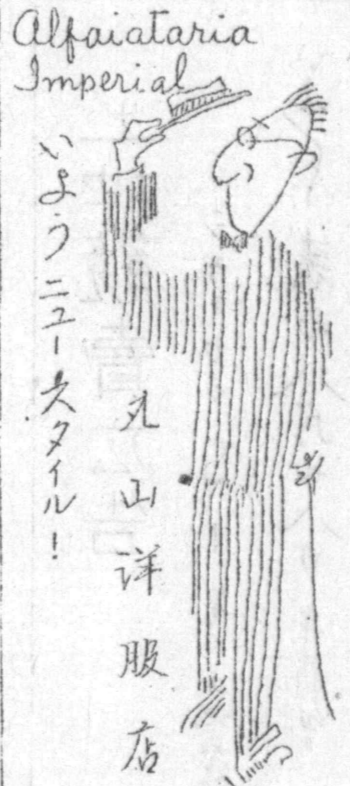 Alfaiataria
Imperial
いようニュースタイル!
丸山洋服店